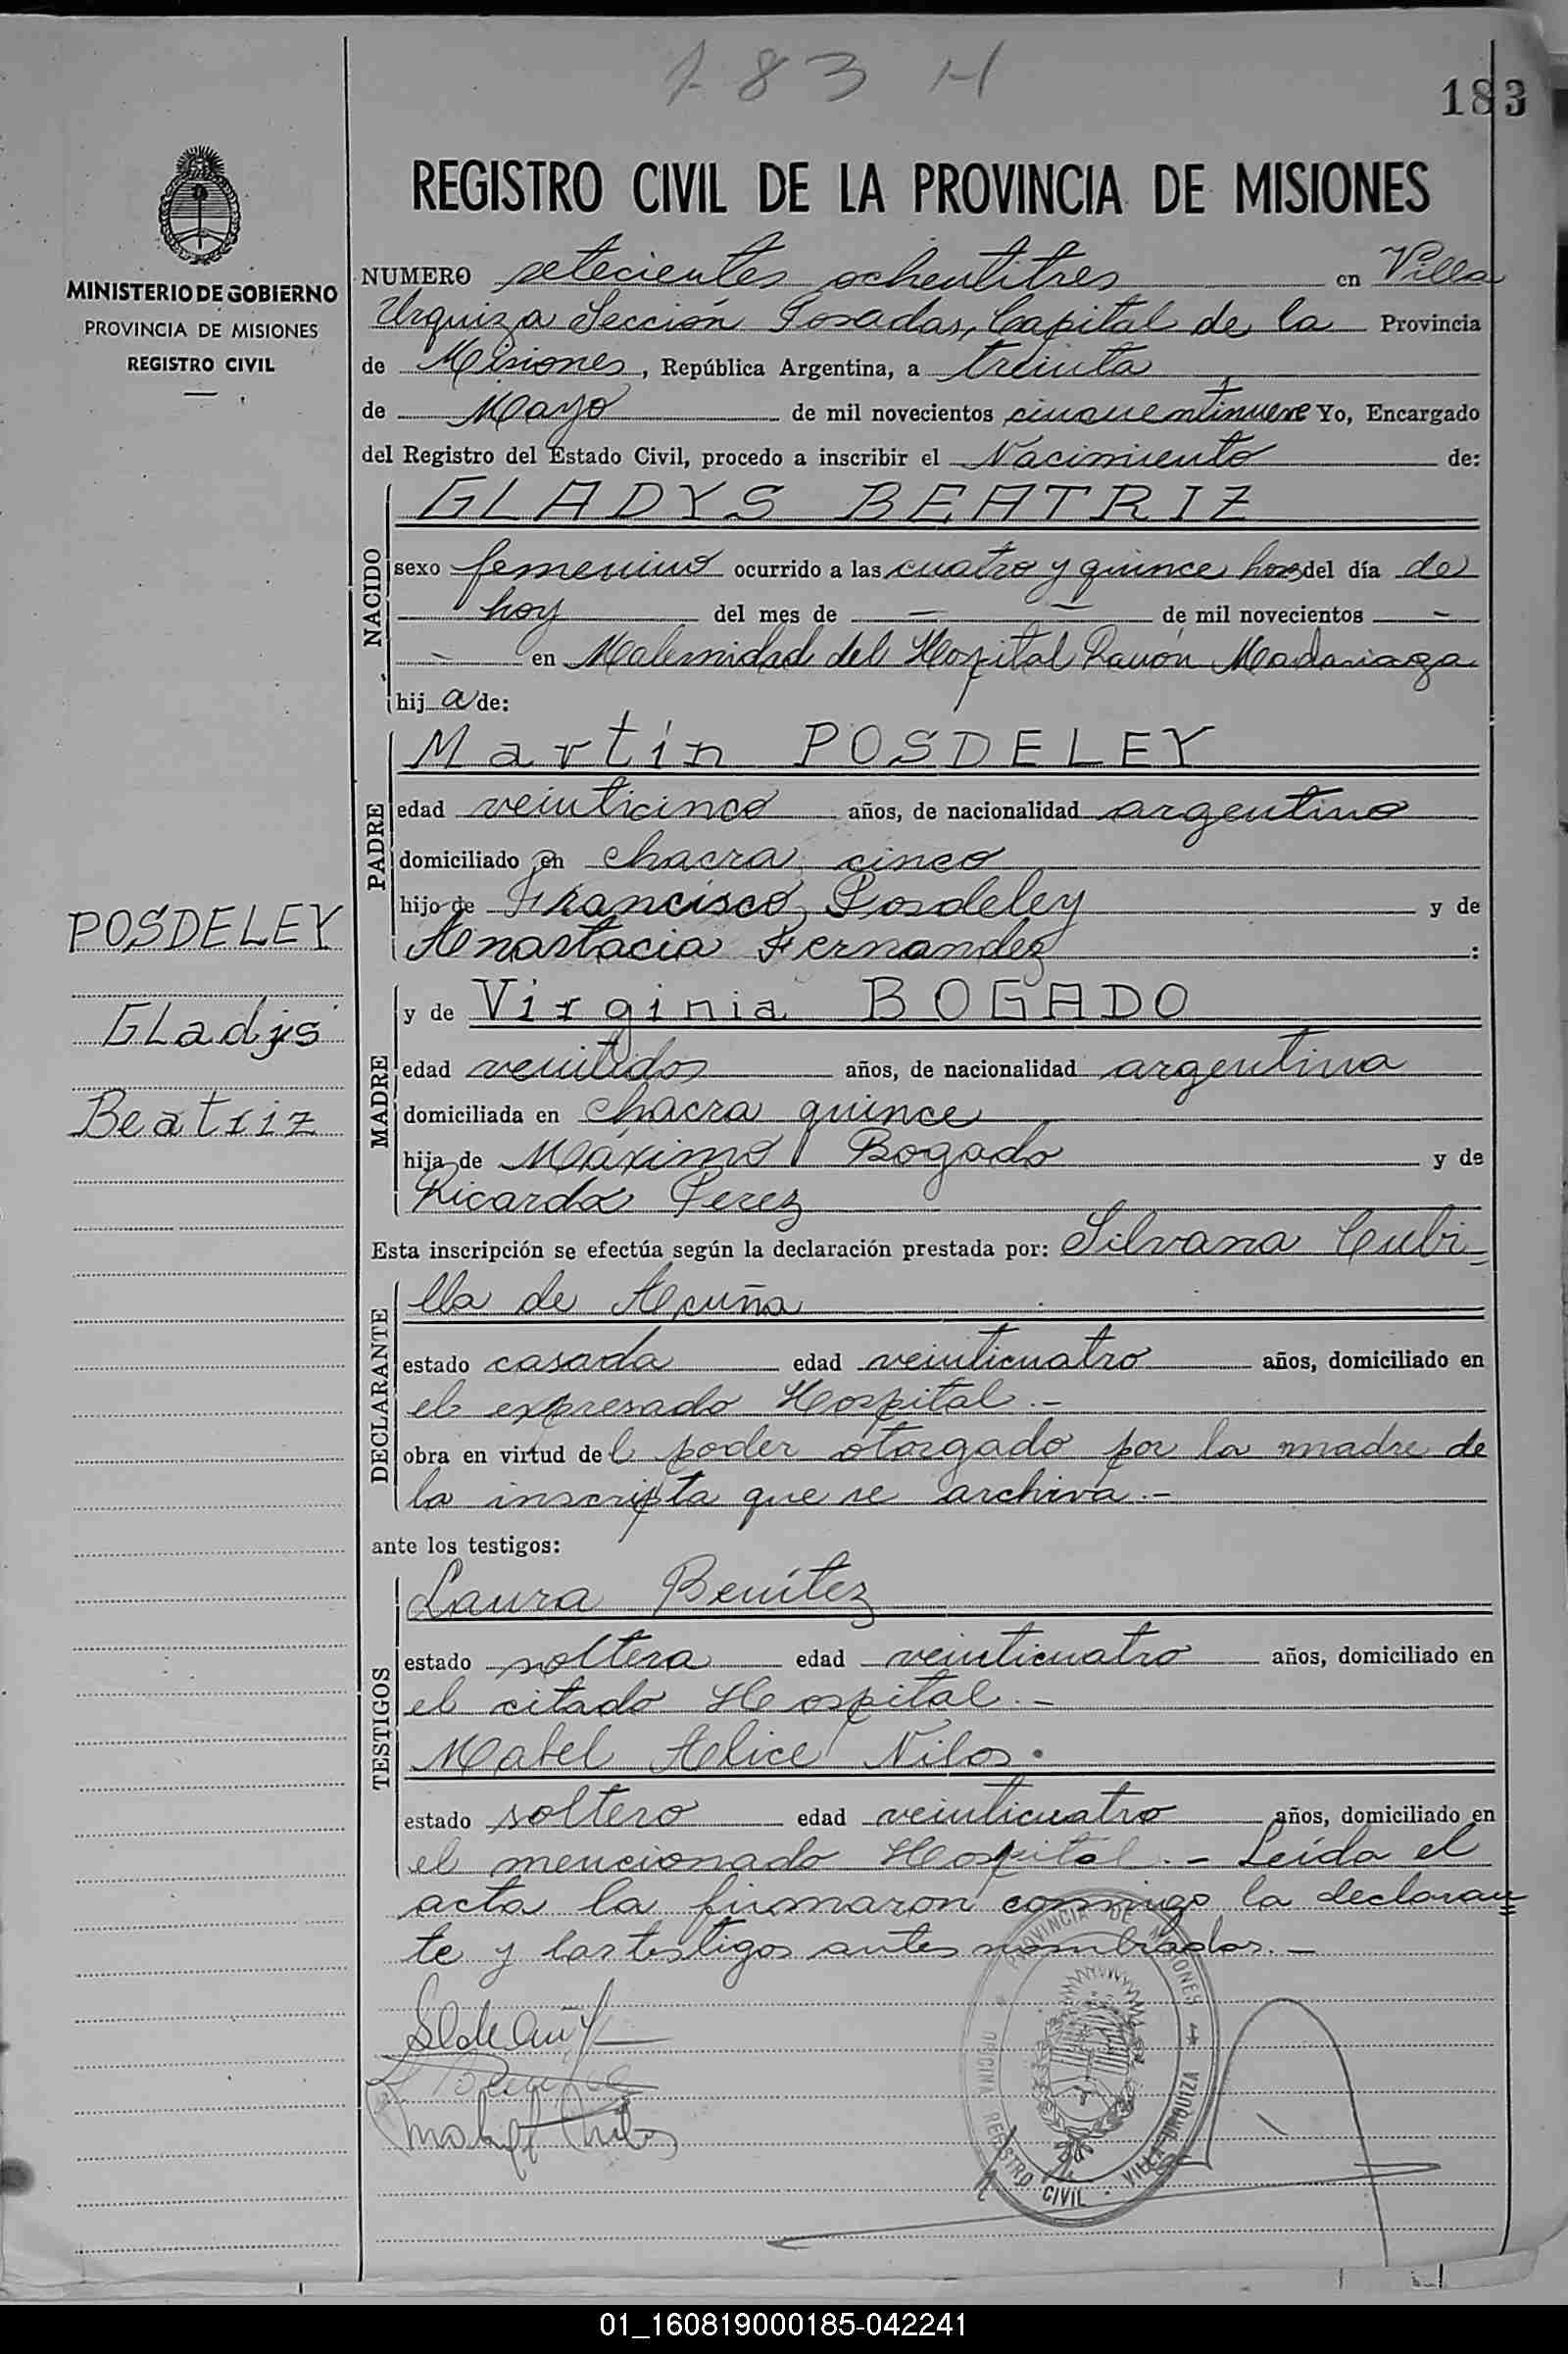 783 H
183
REGISTRO CIVIL DE LA PROVINCIA DE MISIONES
MINISTERIO DE GOBIERNO
PROVINCIA DE MISIONES
REGISTRO CIVIL
NUMERO setecientos ochentitres en Villa
Urquiza Sección Posadas, Capital de la Provincia
de Misiones, República Argentina, a treinta
de Mayo de mil novecientos cincuentinueve Yo, Encargado
del Registro del Estado Civil, procedo a inscribir el Nacimiento de:
NACIDO
GLADYS BEATRIZ
sexo femenino ocurrido a las cuatro y quince horas del día de
hoy del mes de — — de mil novecientos —
— en Maternidad del Hospital Ramón Madariaga
hij a de:
PADRE
Martín POSDELEY
edad veinticinco años, de nacionalidad argentino
domiciliado en chacra cinco
hijo de Francisco Posdeley y de
Anastacia Fernandez :
POSDELEY
Gladys
Beatriz
MADRE
y de Virginia BOGADO
edad veintidos años, de nacionalidad argentina
domiciliada en chacra quince
hija de Máximo Bogado y de
Ricarda Perez
Esta inscripción se efectúa según la declaración prestada por: Silvana Cubi-
DECLARANTE
lla de Acuña
estado casada edad veinticuatro años, domiciliado en
el expresado Hospital.-
obra en virtud del poder otorgado por la madre de
la inscripta que se archiva.-
ante los testigos:
TESTIGOS
Laura Benítez
estado soltera edad veinticuatro años, domiciliado en
el citado Hospital.-
Mabel Alice Nilos.
estado soltero edad veinticuatro años, domiciliado en
el mencionado Hospital.- Leída el
acta la firmaron conmigo la declaran=
te y los testigos antes nombrados.-
PROVINCIA DE MISIONES
OFICINA REGISTRO CIVIL · VILLA URQUIZA
01_160819000185-042241